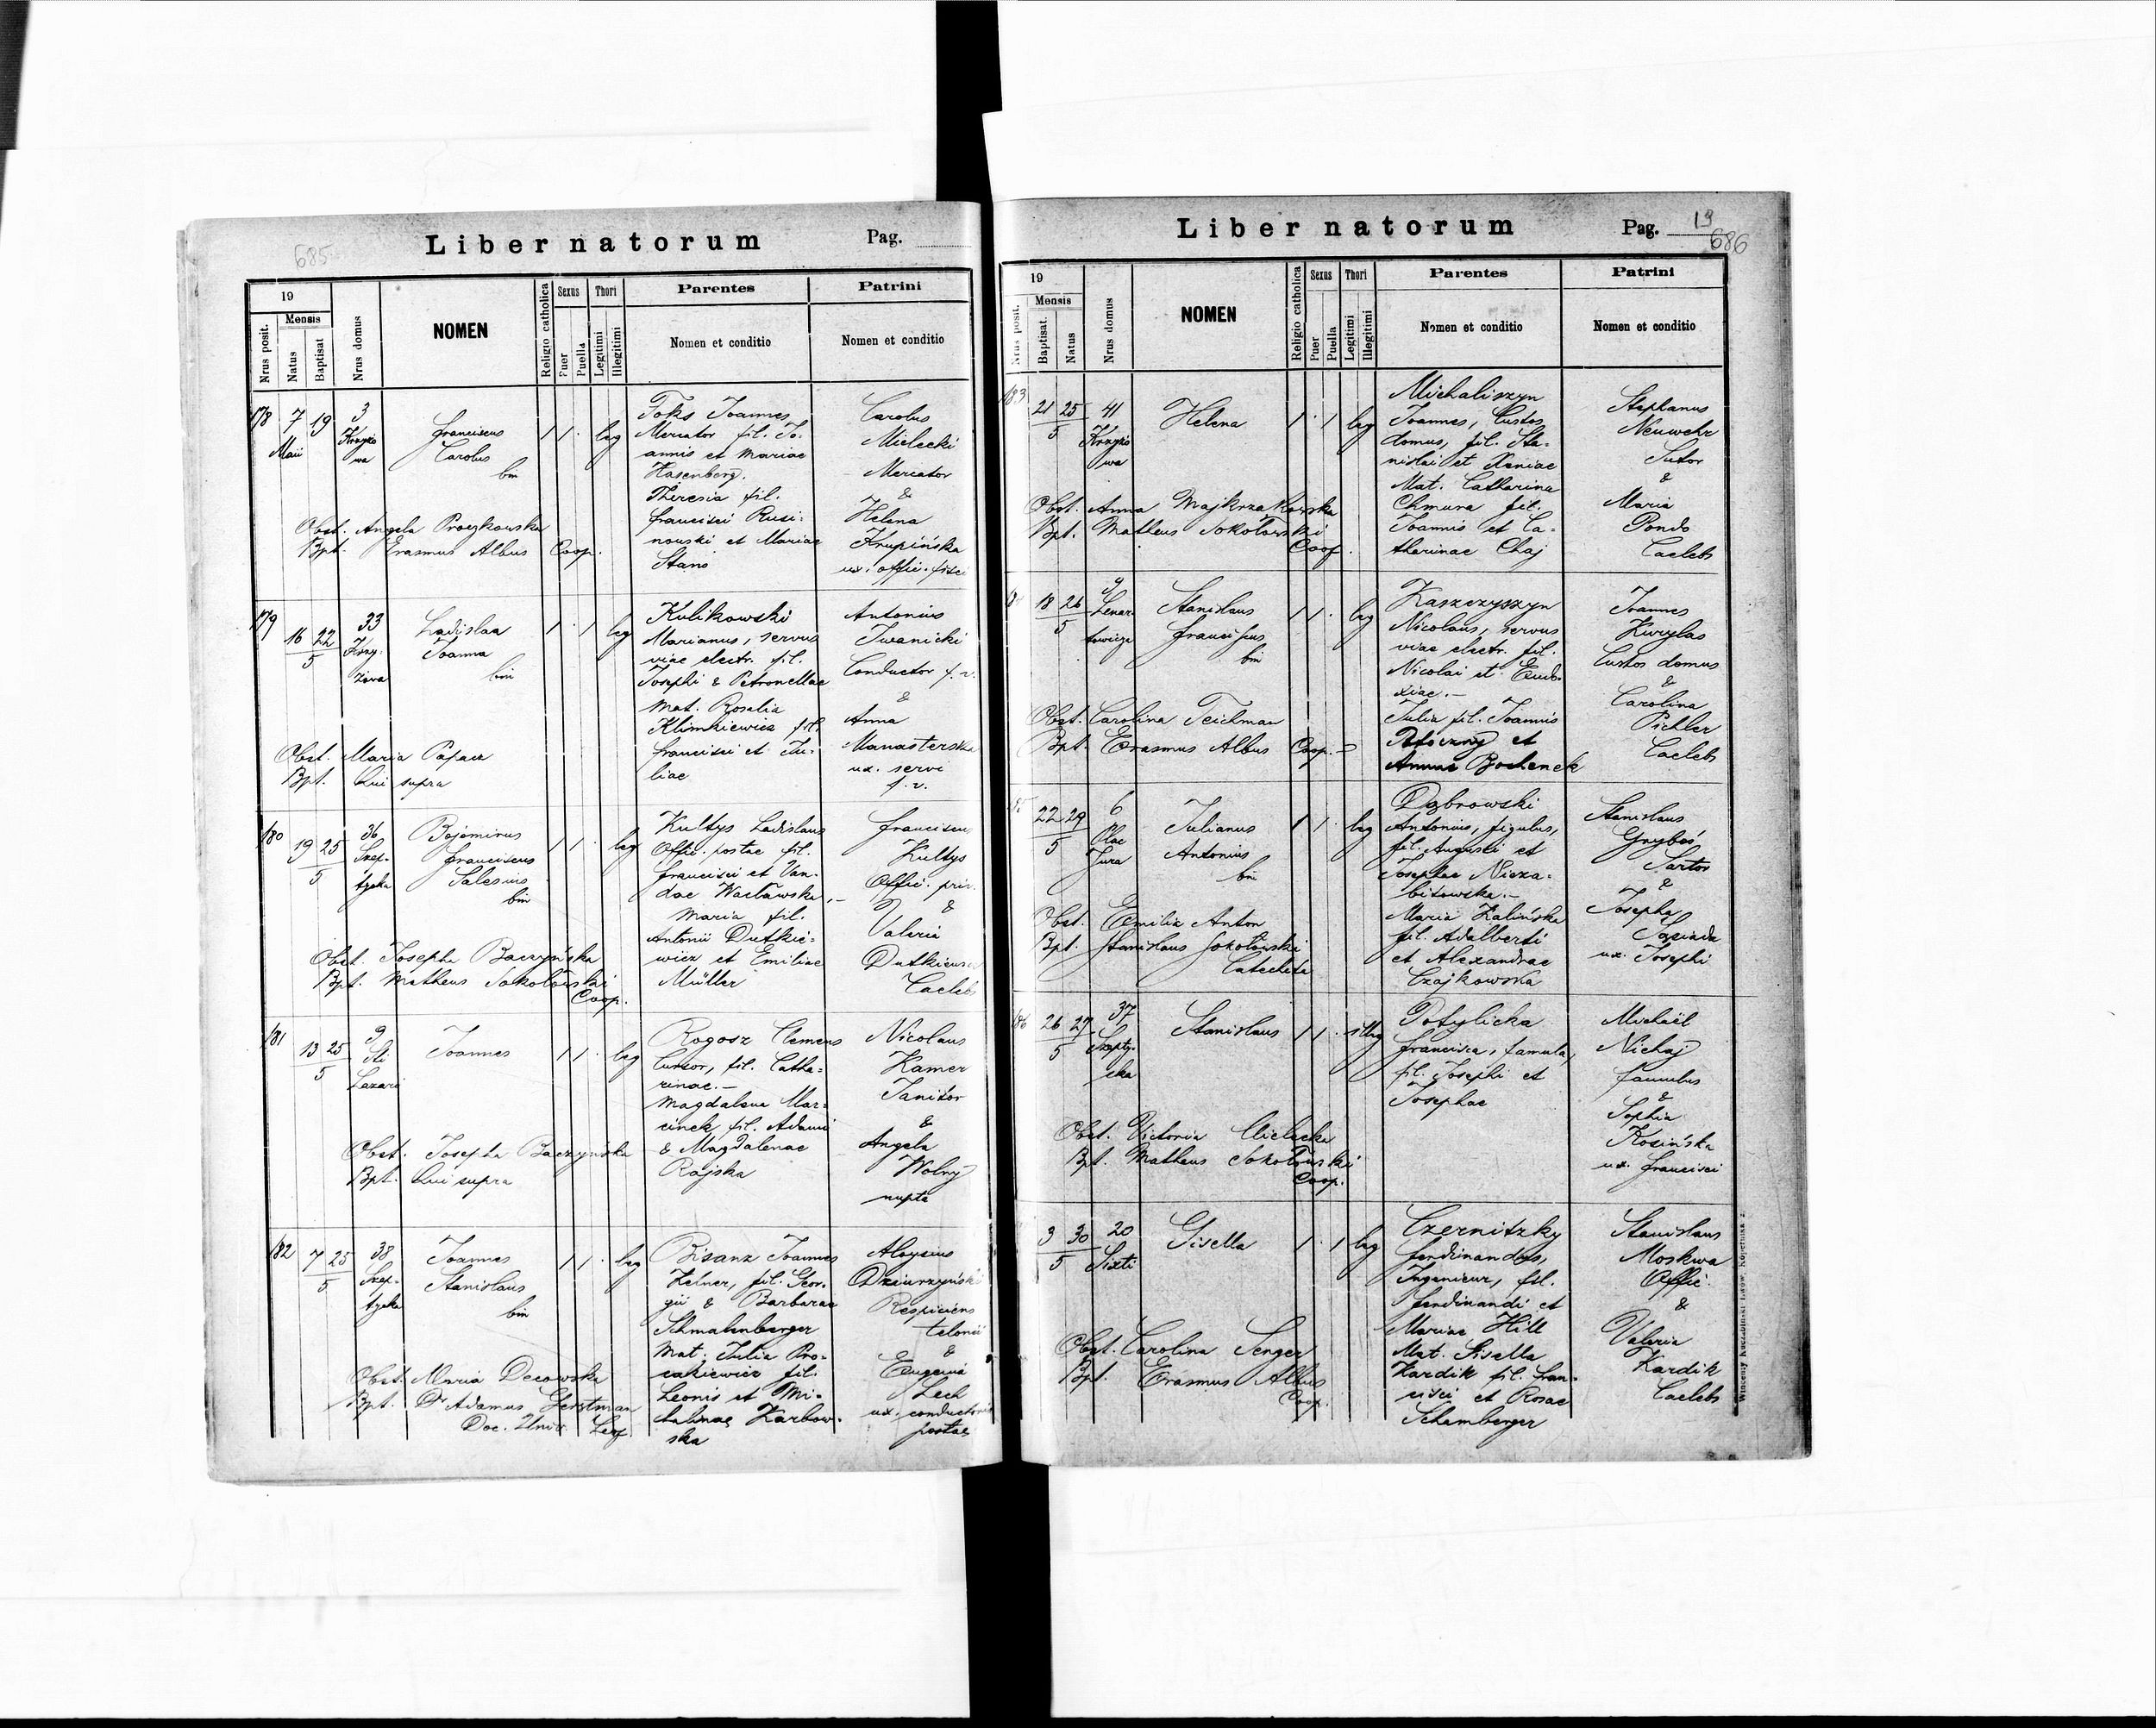 685
Liber natorum
Pag.
19
Mensis
Nrus posit.
Natus
Baptisat
Nrus domus
NOMEN
Religio catholica
Sexus
Puer
Puella
Thori
Legitimi
Illegitimi
Parentes
Nomen et conditio
Patrini
Nomen et conditio
178 7 19 3
Maii
Franciscus
Carolus
bin
1 1 · leg
Foks Joannes
Mercator fil. Jo-
annis et Mariae
Hasenberg.
Theresia fil.
Francisci Rusi-
nowski et Mariae
Carolus
Mielecki
Mercator
&
Helena
Krupińska
ux. offic. fisci
Obst. Angela
Bpt. Erasmus Albus Coop.
179 16 22 33
5
Ladislaa
Joanna
bin
1 · 1 leg
Kulikowski
Marianus, servus
viae electr. fil.
Josephi & Petronellae
Mat. Rosalia
Klimkiewicz fil.
Francisci et Ju-
liae
Antonius
Iwanicki
Conductor f. v.
&
Anna
Manasterska
ux. servi
f. v.
Obst. Maria Papacz
Bpt. Qui supra
180 19 25 36
5
Szep-
tycka
Bojomirus
Franciscus
Salesius
bin
1 1 · leg
Kultys Ladislaus
Offic. postae fil.
Francisci et Van-
dae Wacławska.–
Maria fil.
Antonii Dutkie-
wicz et Emiliae
Müller
Franciscus
Kultys
Offic. priv.
&
Valeria
Caelebs
Obst. Josepha Baczyńska
Bpt. Matheus Sokołowski
Coop.
181 13 25 9
5
Sti
Lazari
Joannes
1 1 · leg
Rogosz Clemens
Cursor, fil. Catha-
rinae.–
Magdalena Mar-
cinek, fil. Adami
& Magdalenae
Rajska
Nicolaus
Kamer
Janitor
&
Angela
Wolny
nupta
Obst. Josepha Baczyńska
Bpt. Qui supra
182 7 25 38
5
Szep-
tycka
Joannes
Stanislaus
bin
1 1 · leg
Bisanz Joannes
Kelner, fil. Geor-
gii & Barbarae
Schmalenberger
Mat. Julia Pro-
cakiewicz fil.
Leonis et Mi-
chalinae Karbow-
ska
Aloysius
Dziurzyński
Respiciens
telonii
&
Eugenia
Lech
ux. conductoris
postae
Obst. Maria Decowska
Bpt. Dr Adamus Gerstman
Doc. Univ. Leop.
Liber natorum
Pag. 19
686
19
Mensis
Nrus posit.
Baptisat.
Natus
Nrus domus
NOMEN
Religio catholica
Sexus
Puer
Puella
Thori
Legitimi
Illegitimi
Parentes
Nomen et conditio
Patrini
Nomen et conditio
183 21 25 41
5
Helena
1 · 1 leg
Michaliszyn
Joannes, Custos
domus, fil. Sta-
nislai et Xeniae
Mat. Catharina
Chmura fil.
Joannis et Ca-
therinae Chaj
Stephanus
Neuwehr
Sutor
&
Maria
Pondo
Caelebs
Obst. Anna Majkrzakowska
Bpt. Matheus Sokołowski
Coop.
18 26 9
5
Lenar-
towicza
Stanislaus
Franciscus
bin
1 1 · leg
Kaszczyszyn
Nicolaus, servus
viae electr. fil.
Nicolai et Eudo-
xiae.–
Julia fil. Joannis
Potoczny et
Annae Bochenek
Joannes
Kurylas
Custos domus
&
Carolina
Pichler
Caelebs
Obst. Carolina Teichman
Bpt. Erasmus Albus Coop.–
22 29 6
5
Plac
Jura
Julianus
Antonius
bin
1 1 · leg
Dąbrowski
Antonius, figulus,
fil. Augusti et
Josephae Nieza-
bitowska.–
Maria Kalińska
fil. Adalberti
et Alexandrae
Czajkowska
Stanislaus
Gryboś
Sartor
&
Josepha
ux. Josephi
Obst. Emilia Anton
Bpt. Stanislaus Sokołowski
Catecheta
186 26 27 37
5
Szepty-
cka
Stanislaus
1 1 · illeg
Potylicka
Francisca, famula,
fil. Josephi et
Josephae
Michaël
Nichaj
famulus
&
Sophia
Kosińska
ux. Francisci
Obst. Victoria Mielecka
Bpt. Matheus Sokołowski
Coop.
3 30 20
5 Sixti
Gisella
1 · 1 leg
Czernitzky
Ferdinandus,
Ingenieur, fil.
Ferdinandi et
Mariae Hill
Mat. Gisella
Kardik fil. Fran-
cisci et Rosae
Schamberger
Stanislaus
Moskwa
Offic.
&
Valeria
Kardik
Caelebs
Obst. Carolina Senger
Bpt. Erasmus Albus
Coop.